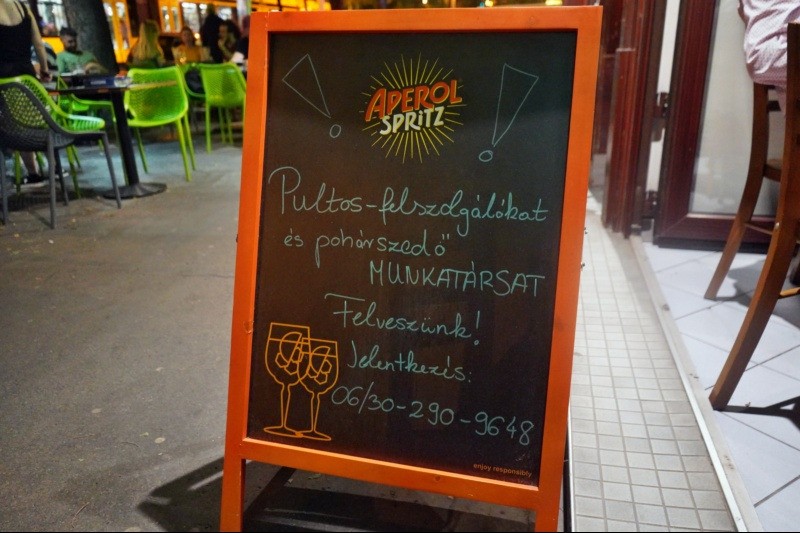 APEROL
SPRITZ
Pultos-felszolgálókat
és pohárszedő
MUNKATÁRSAT
Felveszünk!
Jelentkezés:
06/30-290-9648
enjoy responsibly